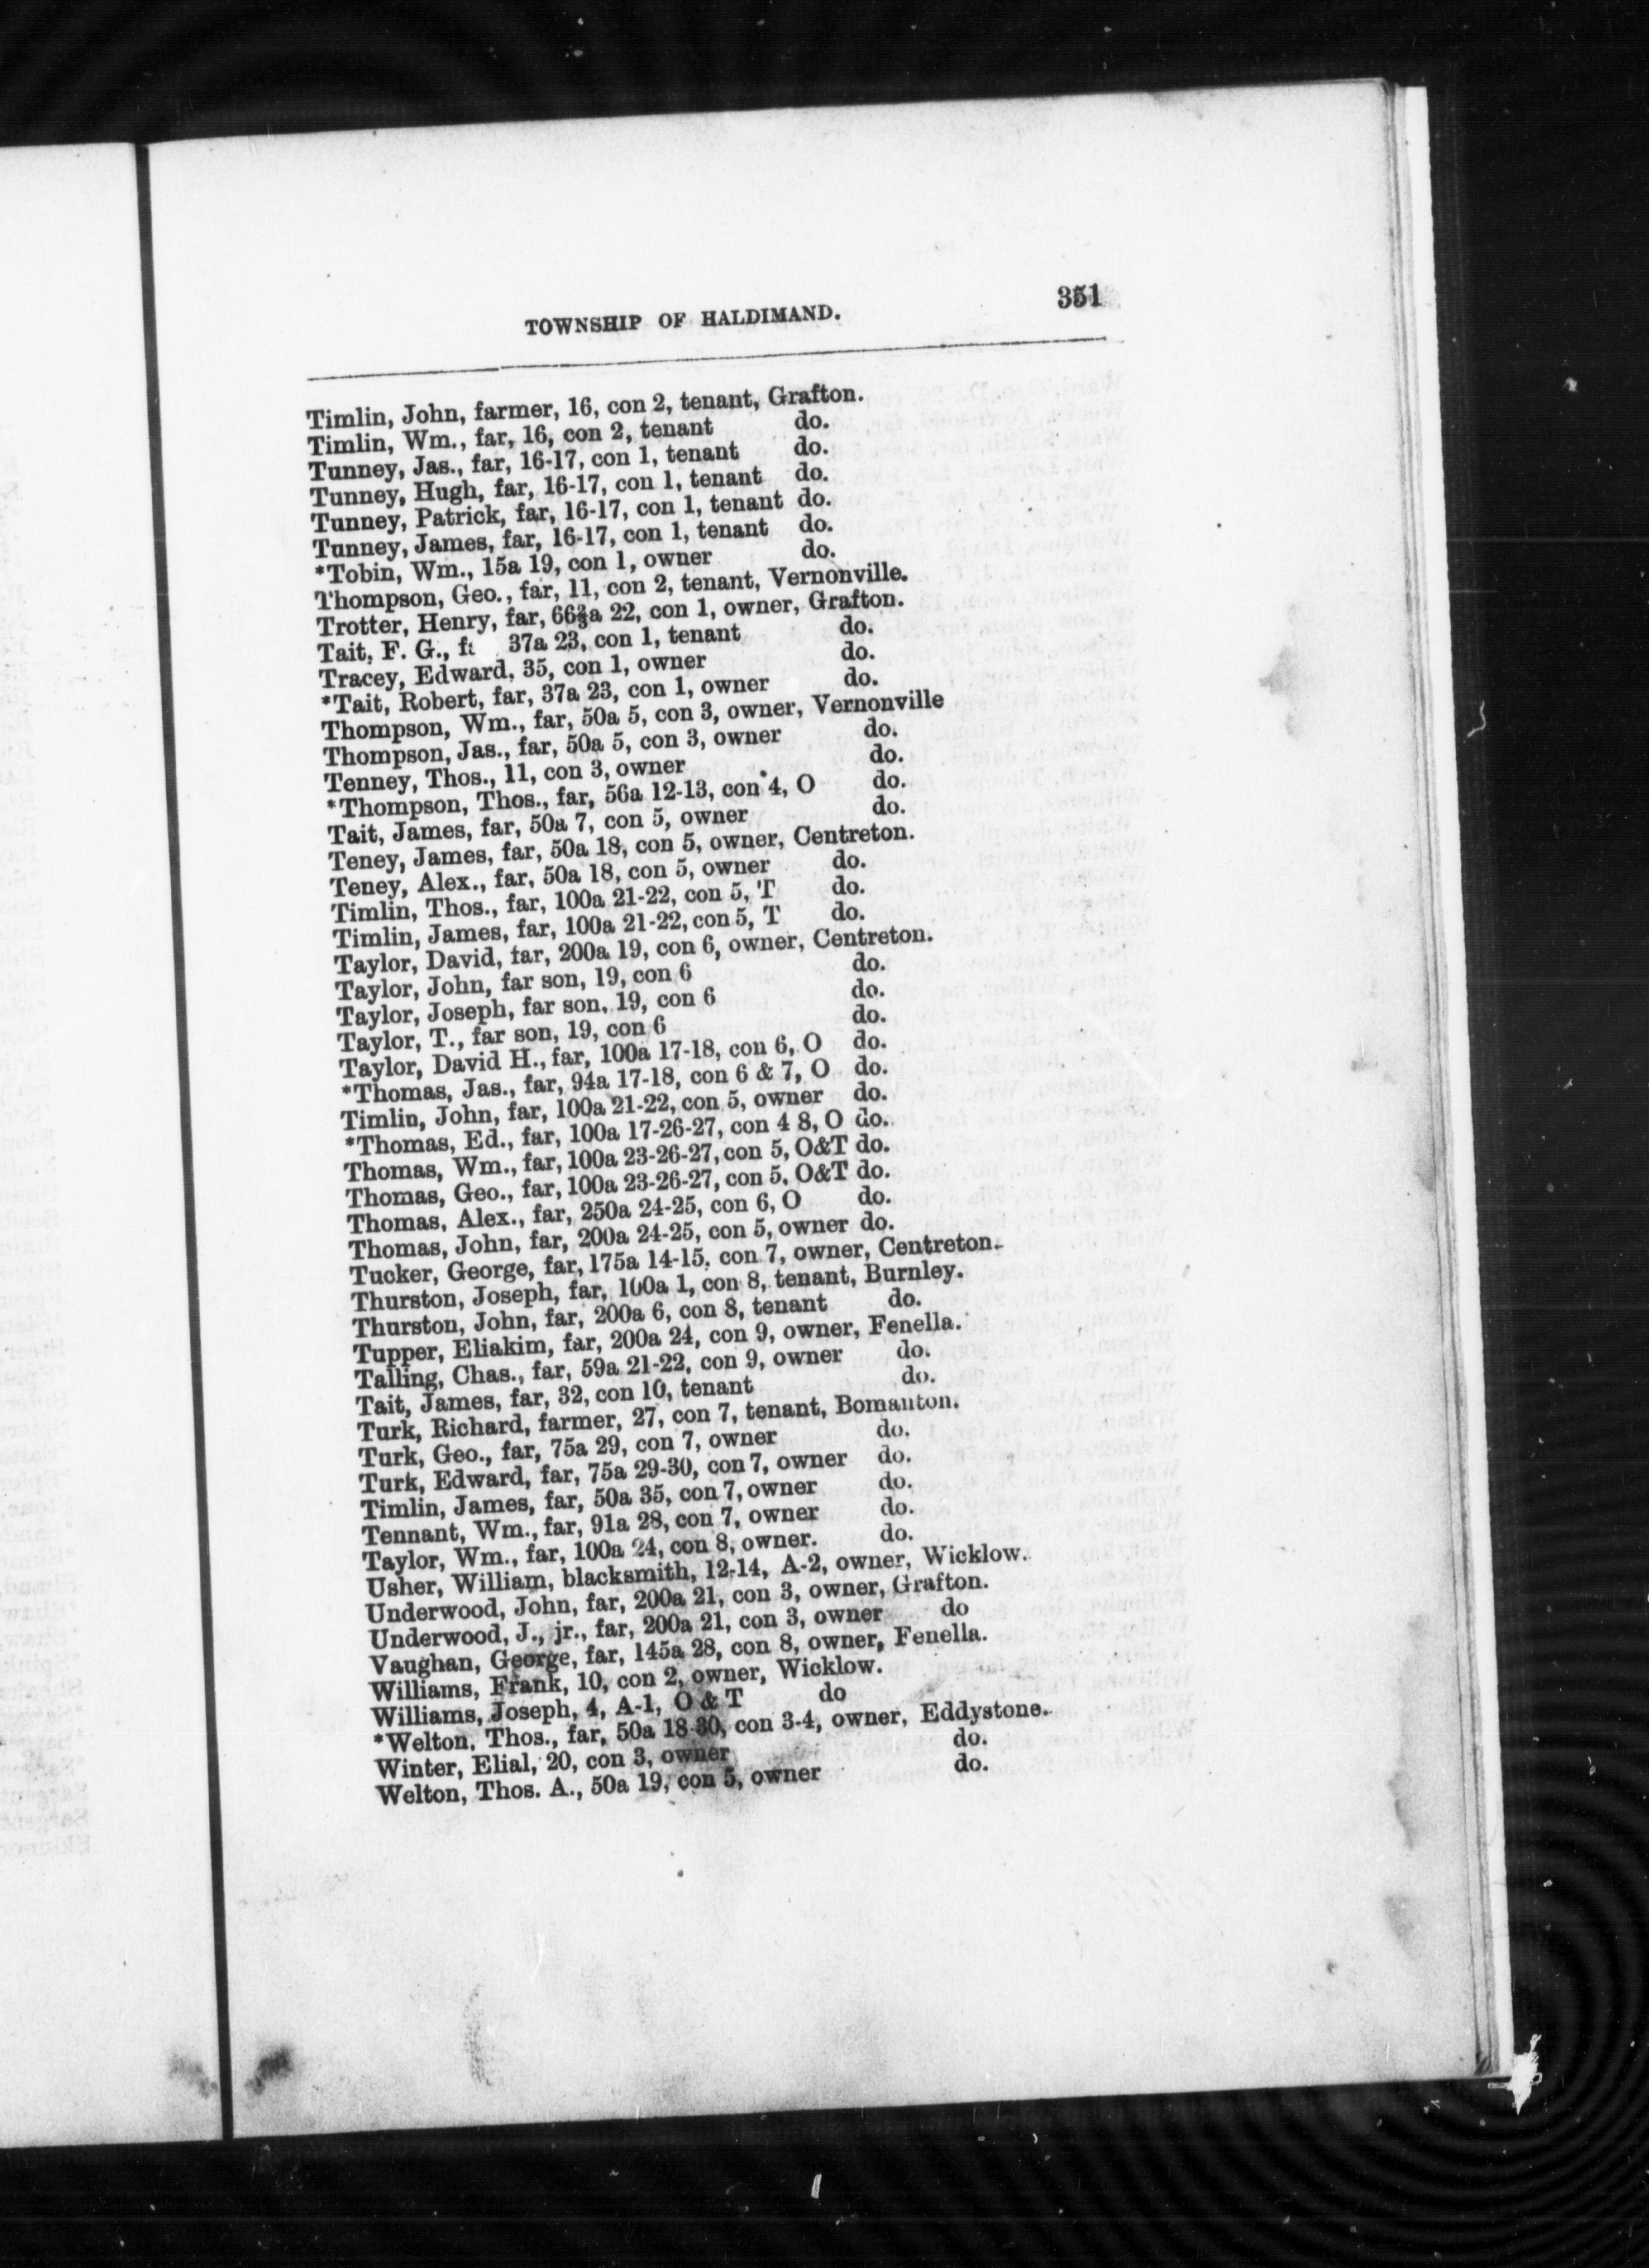 TOWNSHIP OF HALDIMAND. 351
Timlin, John, farmer, 16, con 2, tenant, Grafton.
Timlin, Wm., far, 16, con 2, tenant do.
Tunney, Jas., far, 16-17, con 1, tenant do.
Tunney, Hugh, far, 16-17, con 1, tenant do.
Tunney, Patrick, far, 16-17, con 1, tenant do.
Tunney, James, far, 16-17, con 1, tenant do.
*Tobin, Wm., 15a 19, con 1, owner do.
Thompson, Geo., far, 11, con 2, tenant, Vernonville.
Trotter, Henry, far, 66⅔a 22, con 1, owner, Grafton.
Tait, F. G., 37a 23, con 1, tenant do.
Tracey, Edward, 35, con 1, owner do.
*Tait, Robert, far, 37a 23, con 1, owner do.
Thompson, Wm., far, 50a 5, con 3, owner, Vernonville
Thompson, Jas., far, 50a 5, con 3, owner do.
Tenney, Thos., 11, con 3, owner do.
*Thompson, Thos., far, 56a 12-13, con 4, O do.
Tait, James, far, 50a 7, con 5, owner do.
Teney, James, far, 50a 18, con 5, owner, Centreton.
Teney, Alex., far, 50a 18, con 5, owner do.
Timlin, Thos., far, 100a 21-22, con 5, T do.
Timlin, James, far, 100a 21-22, con 5, T do.
Taylor, David, far, 200a 19, con 6, owner, Centreton.
Taylor, John, far son, 19, con 6 do.
Taylor, Joseph, far son, 19, con 6 do.
Taylor, T., far son, 19, con 6 do.
Taylor, David H., far, 100a 17-18, con 6, O do.
*Thomas, Jas., far, 94a 17-18, con 6 & 7, O do.
Timlin, John, far, 100a 21-22, con 5, owner do.
*Thomas, Ed., far, 100a 17-26-27, con 4 8, O do.
Thomas, Wm., far, 100a 23-26-27, con 5, O&T do.
Thomas, Geo., far, 100a 23-26-27, con 5, O&T do.
Thomas, Alex., far, 250a 24-25, con 6, O do.
Thomas, John, far, 200a 24-25, con 5, owner do.
Tucker, George, far, 175a 14-15, con 7, owner, Centreton.
Thurston, Joseph, far, 100a 1, con 8, tenant, Burnley.
Thurston, John, far, 200a 6, con 8, tenant do.
Tupper, Eliakim, far, 200a 24, con 9, owner, Fenella.
Talling, Chas., far, 59a 21-22, con 9, owner do.
Tait, James, far, 32, con 10, tenant do.
Turk, Richard, farmer, 27, con 7, tenant, Bomanton.
Turk, Geo., far, 75a 29, con 7, owner do.
Turk, Edward, far, 75a 29-30, con 7, owner do.
Timlin, James, far, 50a 35, con 7, owner do.
Tennant, Wm., far, 91a 28, con 7, owner do.
Taylor, Wm., far, 100a 24, con 8, owner. do.
Usher, William, blacksmith, 12-14, A-2, owner, Wicklow.
Underwood, John, far, 200a 21, con 3, owner, Grafton.
Underwood, J., jr., far, 200a 21, con 3, owner do
Vaughan, George, far, 145a 28, con 8, owner, Fenella.
Williams, Frank, 10, con 2, owner, Wicklow.
Williams, Joseph, 4, A-1, O & T do
*Welton, Thos., far, 50a 18-30, con 3-4, owner, Eddystone.
Winter, Elial, 20, con 3, owner do.
Welton, Thos. A., 50a 19, con 5, owner do.